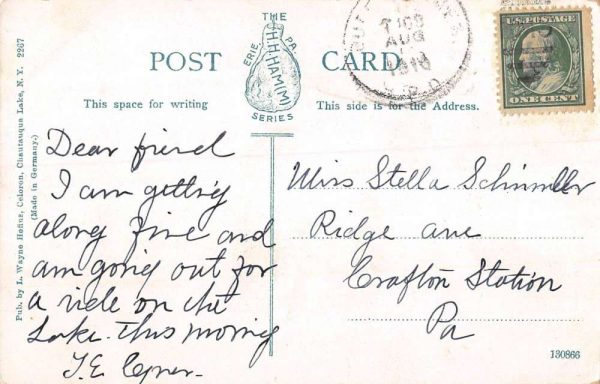 THE
ERIE, PA.
H.H.HAM(M)
SERIES
POST CARD
This space for writing
This side is for the Address.
Pub. by L. Wayne Hefiur, Celoron, Chautauqua Lake, N. Y. 2267
(Made in Germany.)
AUG
1910
R.P.O.
U.S. POSTAGE
ONE CENT
Dear friend
I am getting
along fine and
am going out for
a ride on the
Lake. this morning
T.E.
Miss Stella
Ridge ave
Crafton Station
Pa
130866